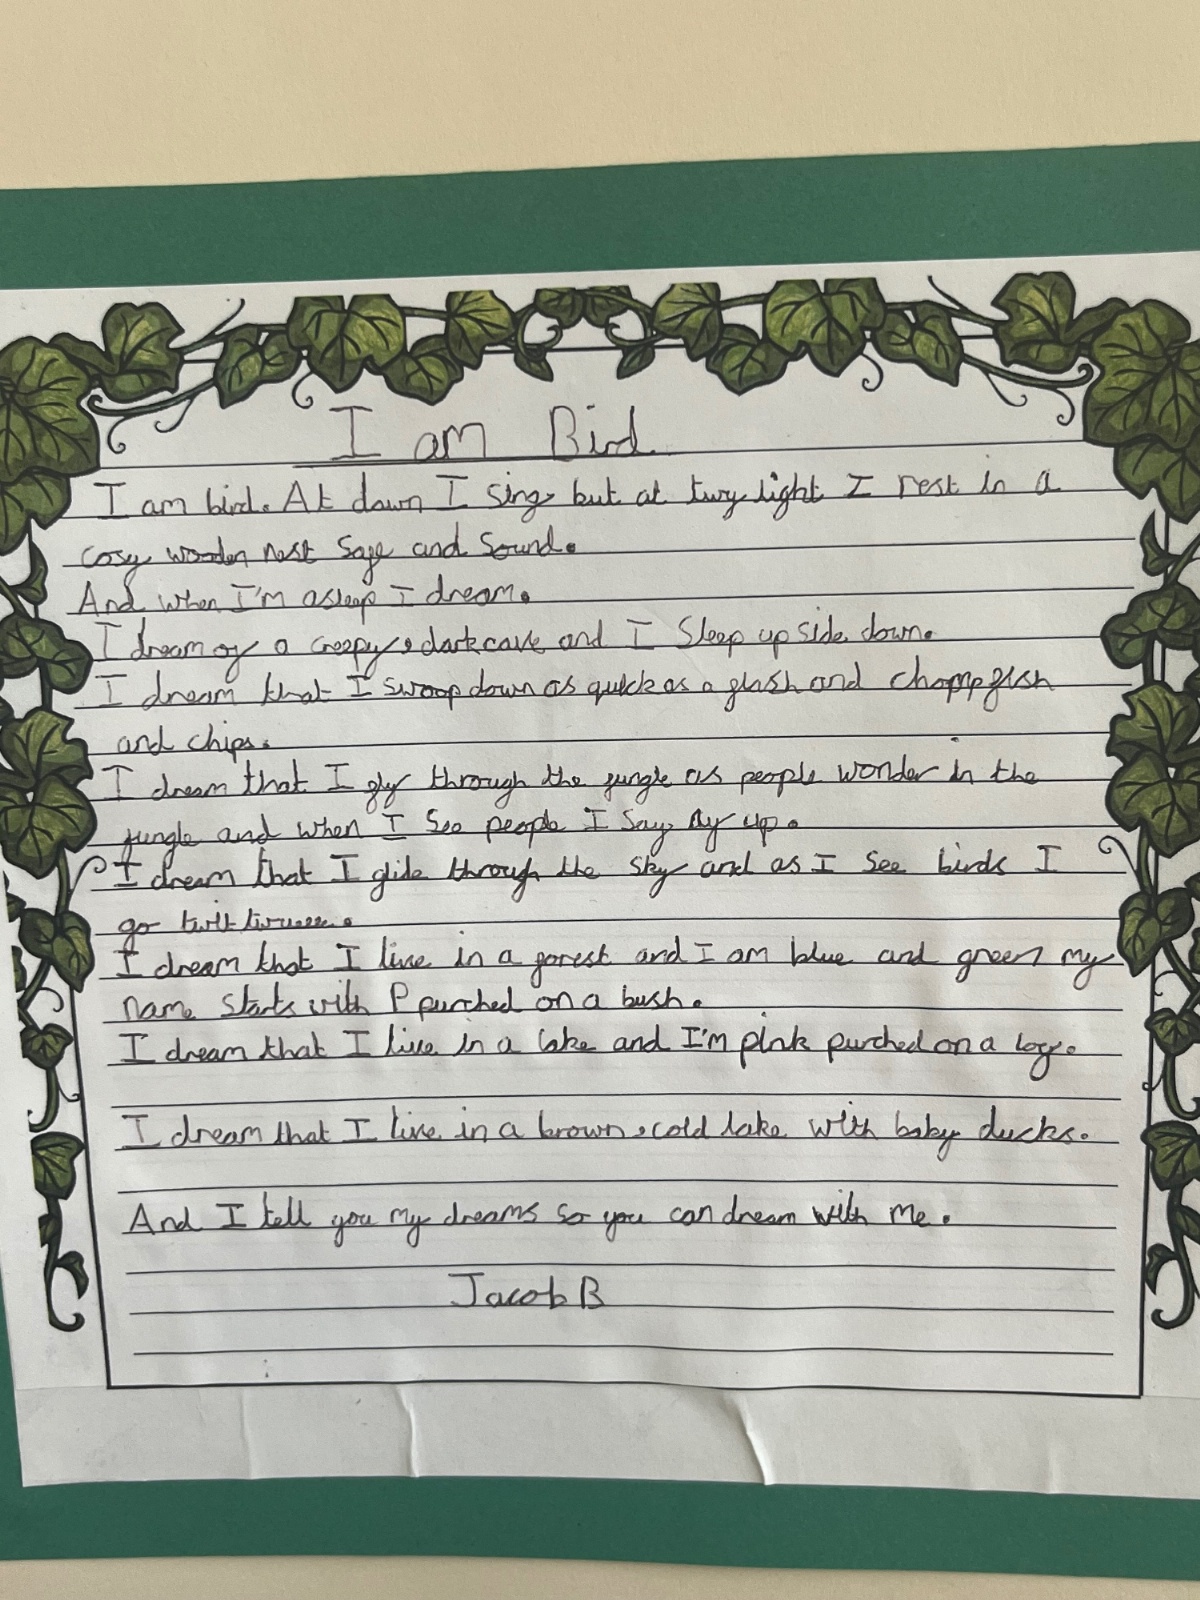 I am Bird
I am bird. At down I sing but at twylight I rest in a
cosy wooden nest safe and sound.
And when I'm asleep I dream.
I dream of a creepy, dark cave and I sleep up side down.
I dream that I swoop down as quick as a flash and chomp fish
and chips.
I dream that I fly through the jungle as people wonder in the
jungle and when I see people I say up.
I dream that I glide through the sky and as I see birds I
go twit
I dream that I live in a forest and I am blue and green my
name starts with P purched on a bush.
I dream that I live in a lake and I'm pink purched on a log.
I dream that I live in a brown, cold lake with baby ducks.
And I tell you my dreams so you can dream with me.
Jacob B